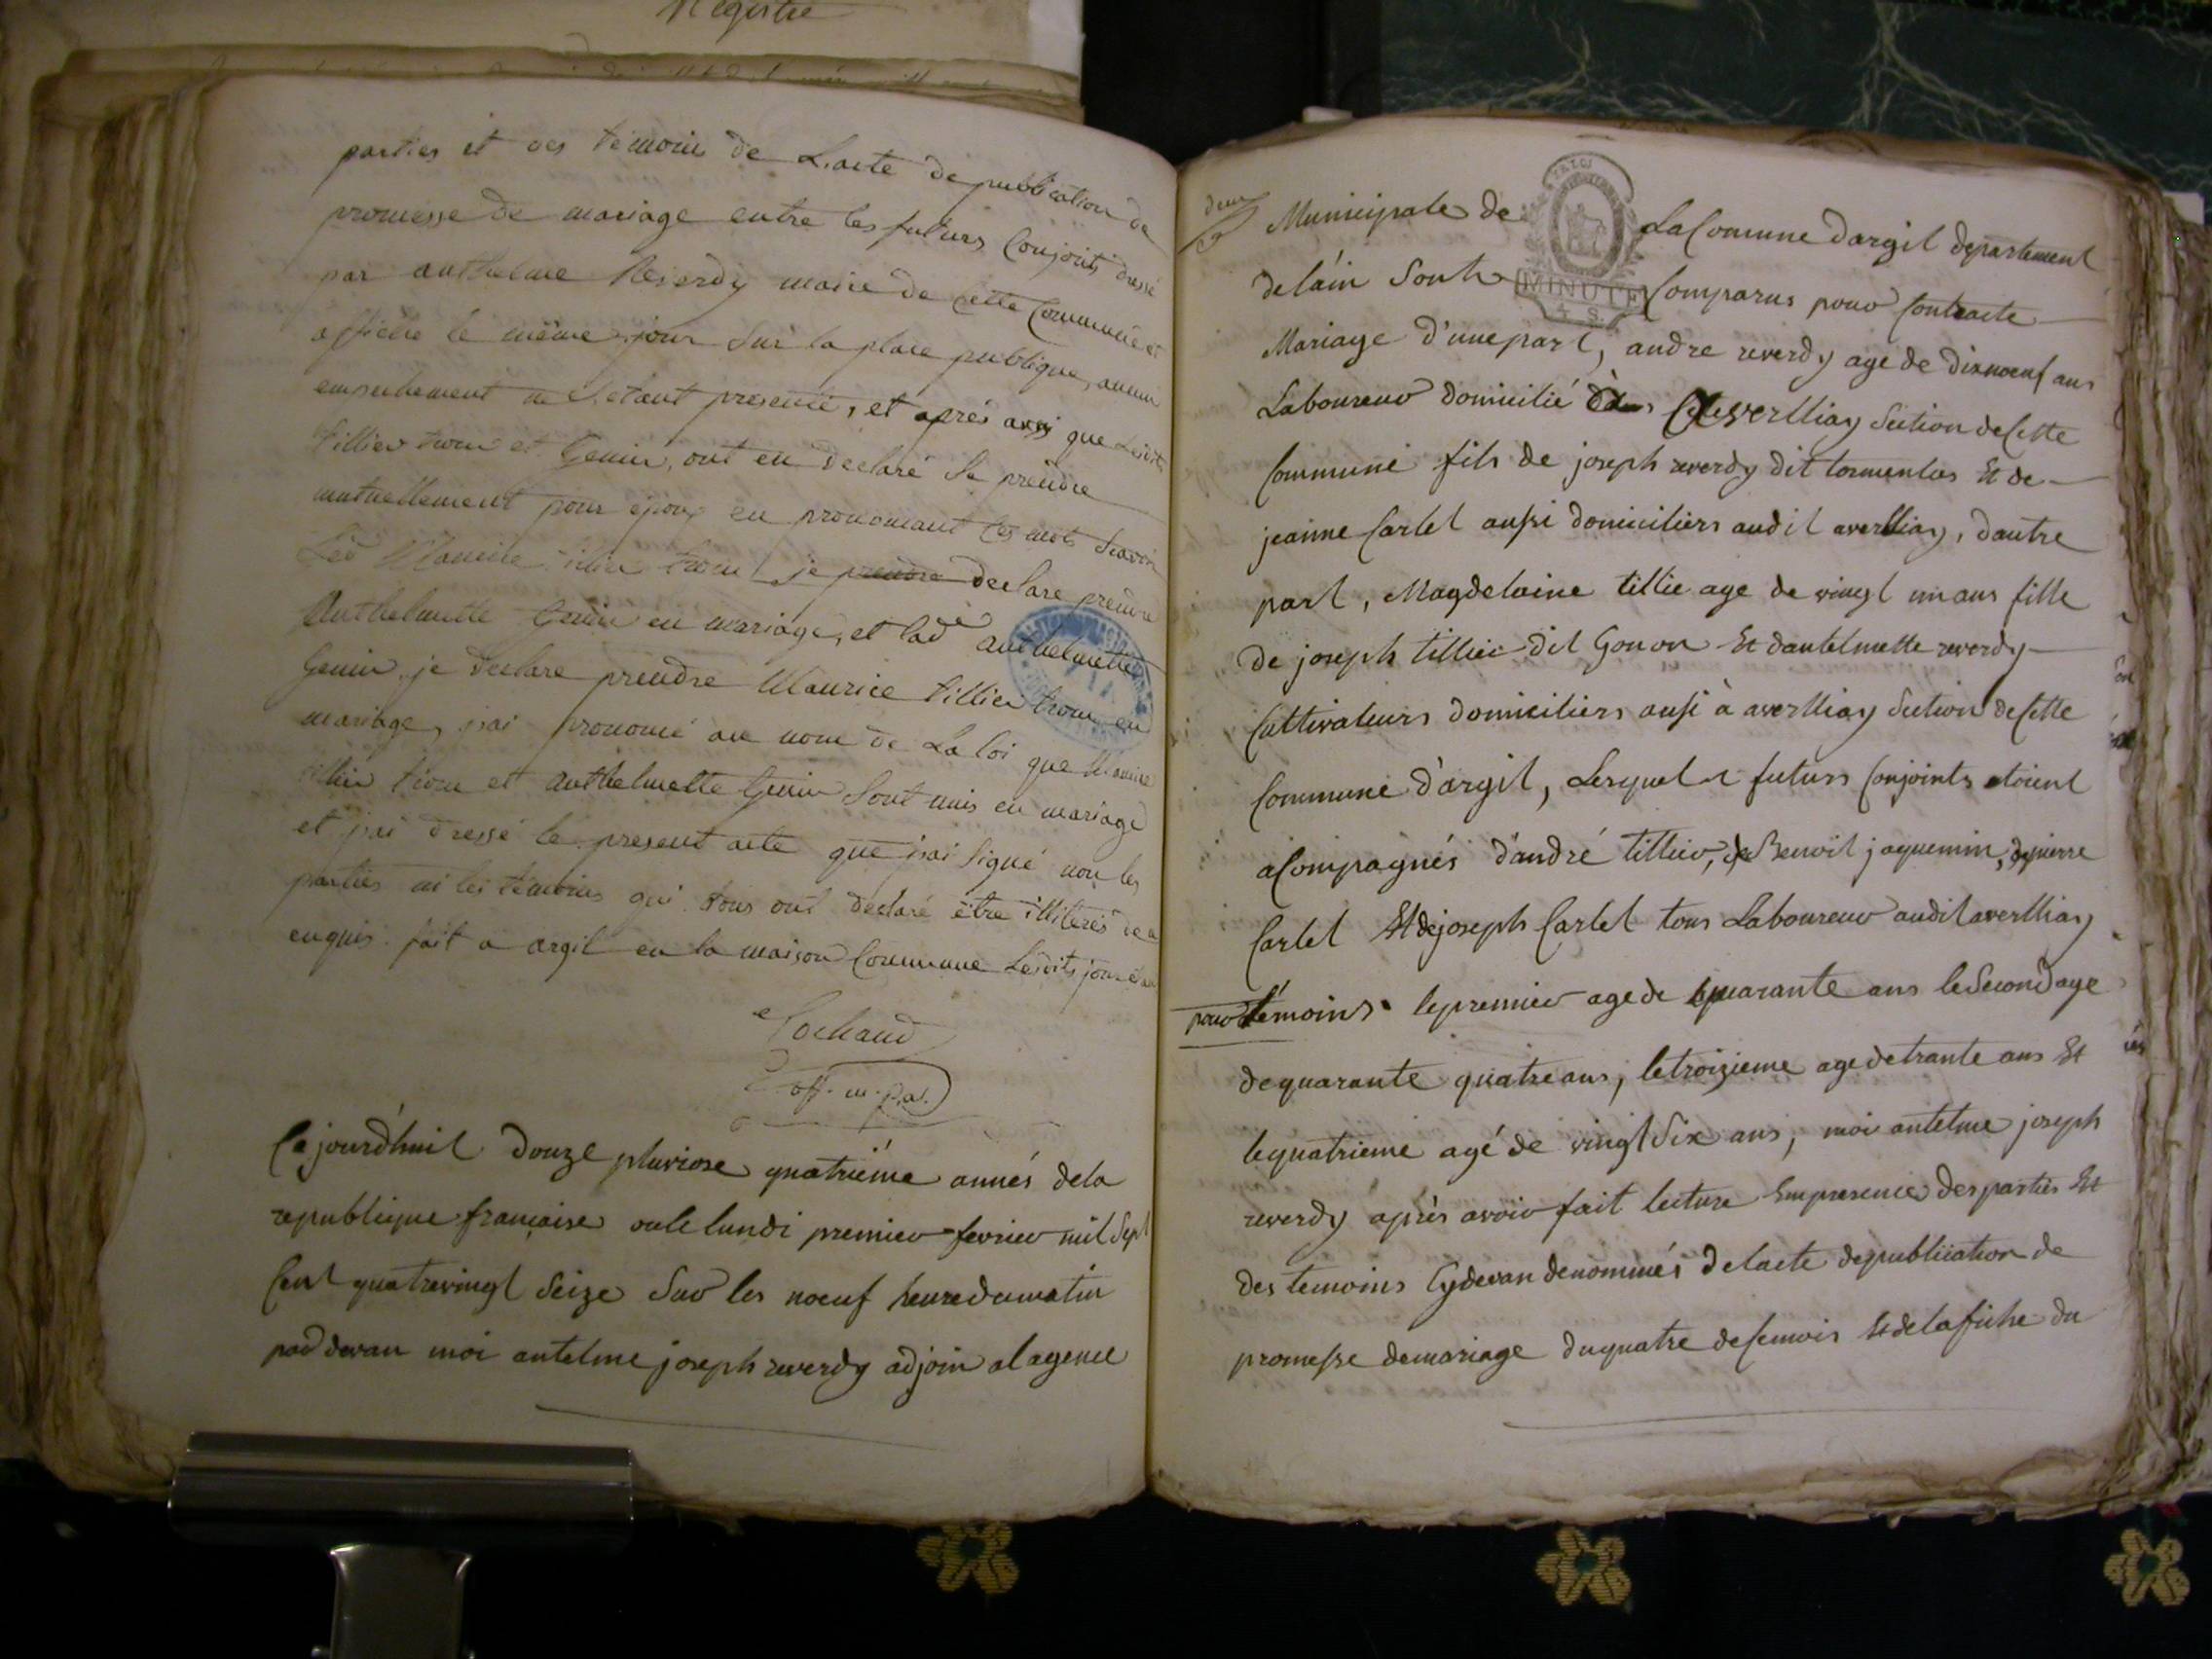 Registre
parties et ces témoins de L'acte de publication de
promesse de mariage entre les futurs Conjoints dressé
par anthelme Reverdy maire de Cette Commune et
affiché le même jour sur la place publique, aucun
empechement ne S'etant presenté, et aprés que Lesdits
tillier et Genin, ont eu declaré Se prendre
mutuellement pour epoux en prononcant ces mots Scavoir
Led Maurice je prendre declare prendre
Anthelmette Genin en mariage, et lad anthelmette
Genin, je declare prendre Maurice tillier en
mariage, j'ai prononcé au nom de La loi que Maurice
tillier et anthelmette Genin Sont unis en mariage
et j'ai dressé le present acte que j'ai Signé non les
parties ni les témoins qui tous ont declaré être illiterés de ce
enquis. fait a argil en la maison Commune Lesdits jour et an
off. m. p.al.
Cejourd'huit douze pluviose quatriéme annés dela
republique française oule lundi premier fevrier mil Sept
Cent quatrevingt Seize Sur les noeuf heuredumatin
pardevan moi antelme joseph reverdy adjoin alagence
deux
Municipale de LaComune dargil departement
delain Sont Comparus pour Contracte
MINUTE
4 S.
Mariage d'unepart, andre reverdy age de dixnoeuf ans
Laboureur domicilié averlliay Section deCette
Commune fils de joseph reverdy dit tormentas Et de
jeanne Carlel aussi domiciliers audit averlliay, dautre
part, Magdelaine tillie age de vingt un ans fille
de joseph tillier dit Gonon Et dantelmette reverdy
Cultivateurs domiciliers ausi à averlliay Section deCette
Commune d'argil, Lesquel futurs Conjoints etoient
aCompagnés d'andré tillier, de Benoit jaquemin, depierre
Carlel Et dejoseph Carlel tous Laboureur audit averlliay
pour témoins lepremier agede quarante ans leSecond age
dequarante quatre ans, letroizieme agedetrante ans Et
lequatrieme agé de vingt Six ans, moi antelme joseph
reverdy aprés avoir fait lecture Enpresence desparties Et
des temoins Cydevan denommés delacte depublication de
promesse demariage duquatre deCemois Et delafiche du